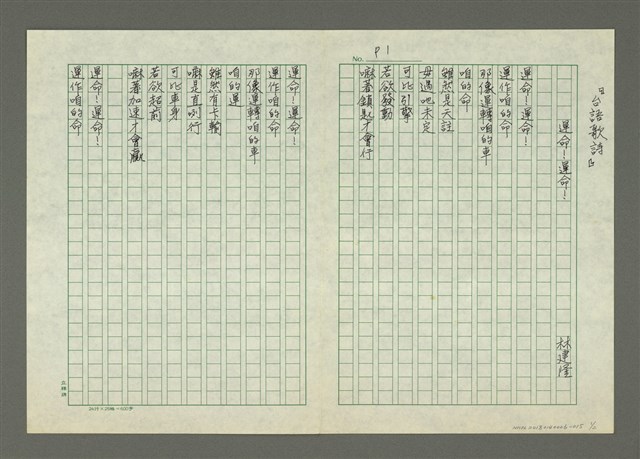 P1
No.
「台語歌詩」
運命！運命！
林建隆
運命！運命！
運作咱的命
那像運轉咱的車
咱的命
雖然是天註
毋過吧未定
可比引擎
若欲發動
嘛著鎖匙才會行
運命！運命！
運作咱的命
那像運轉咱的車
咱的運
雖然有卡輸
嘛是直咧行
可比車身
若欲超前
嘛著加速才會贏
運命！運命！
運作咱的命
24行×25格=600字